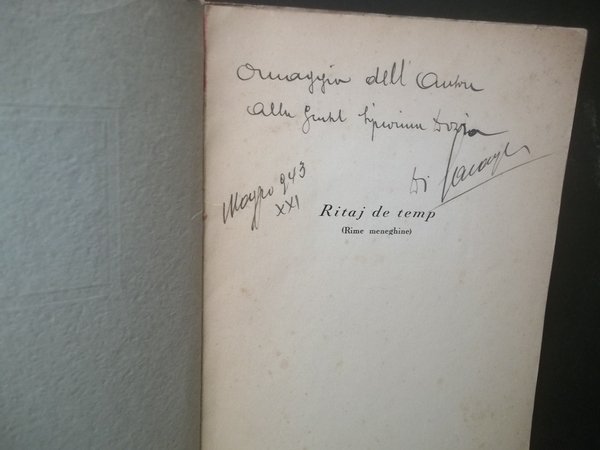 Omaggio dell'Autore
alla Gentil Signorina
Maggio 943
XXI
Ritaj de temp
(Rime meneghine)